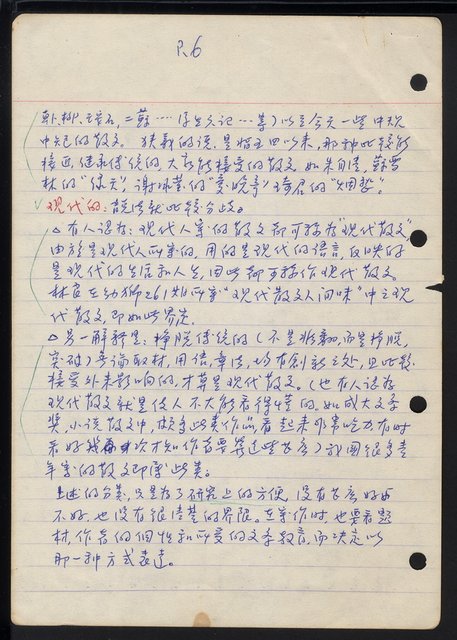 P.6
韓、柳、王安石,二蘇……浮生六記……等)以至今天一些中規
中矩的散文。狹義的說,是指五四以來,那種比較能
接近,繼承傳統的,大家能接受的散文,如朱自清,蘇雪
林的"綠天",謝冰瑩的"愛晚亭",琦君的"烟愁"。
現代的:說法就比較分歧。
△有人認為:現代人寫的散文都可稱為"現代散文",
由於是現代人所寫的,用的是現代的語言,反映的
是現代的生活和人生,因此都可稱作現代散文。
林良在幼獅261期所寫"現代散文人間味"中之現
代散文,即如此界定。
△另一解釋是:掙脫傳統的(不是推翻而是掙脫,
突破)無論取材,用語,章法,均有創新之處,且比較
接受外來影响的,才算是現代散文。(也有人認為
現代散文就是使人不大能看得懂的。如成大文學
獎,小說散文中,很多此類作品,看起來非常吃力,有時
看好幾次才知作者要寫這些甚么)我國很多青
年寫的散文即屬此類。
上述的分類,只是為了研究上的方便,沒有甚么好與
不好,也沒有很清楚的界限。在寫作時,也要看題
材,作者的個性和所受的文學教育,而決定以
那一種方式表達。